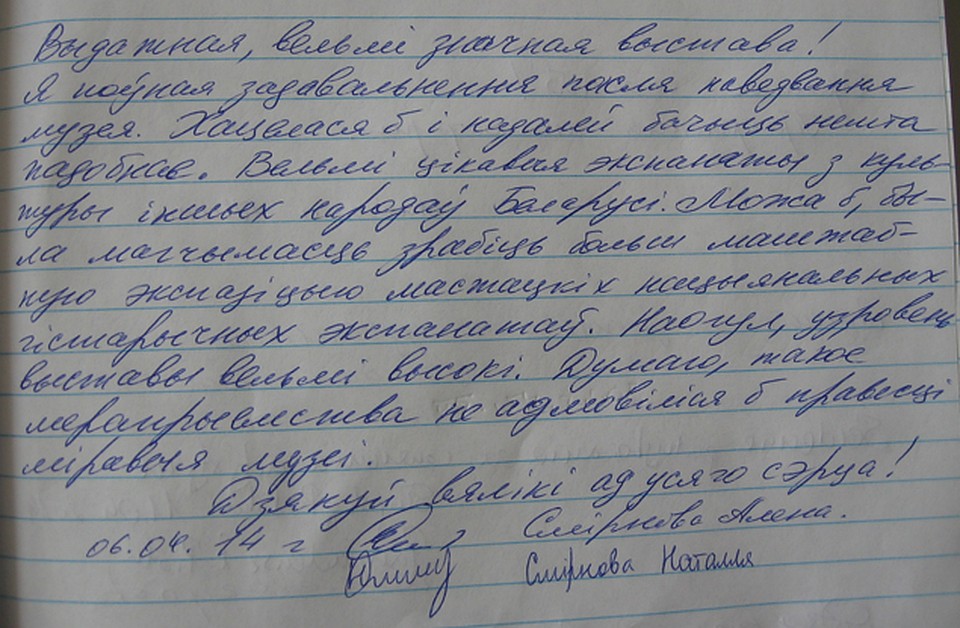 Выдатная, вельмі значная выстава!
Я поўная задавальнення пасля наведвання
музея. Хацелася б і надалей бачыць нешта
падобнае. Вельмі цікавыя экспанаты з куль-
туры іншых народаў Беларусі. Можа б, бы-
ла магчымасць зрабіць больш маштаб-
ную экспазіцыю мастацкіх нацыянальных
гістарычных экспанатаў. Наогул, узровень
выставы вельмі высокі. Думаю, такое
мерапрыемства не адмовіліся б правесці
міравыя музеі.
Дзякуй вялікі ад усяго сэрца!
06.04. 14 г Смірнова Алена.
Смірнова Наталля